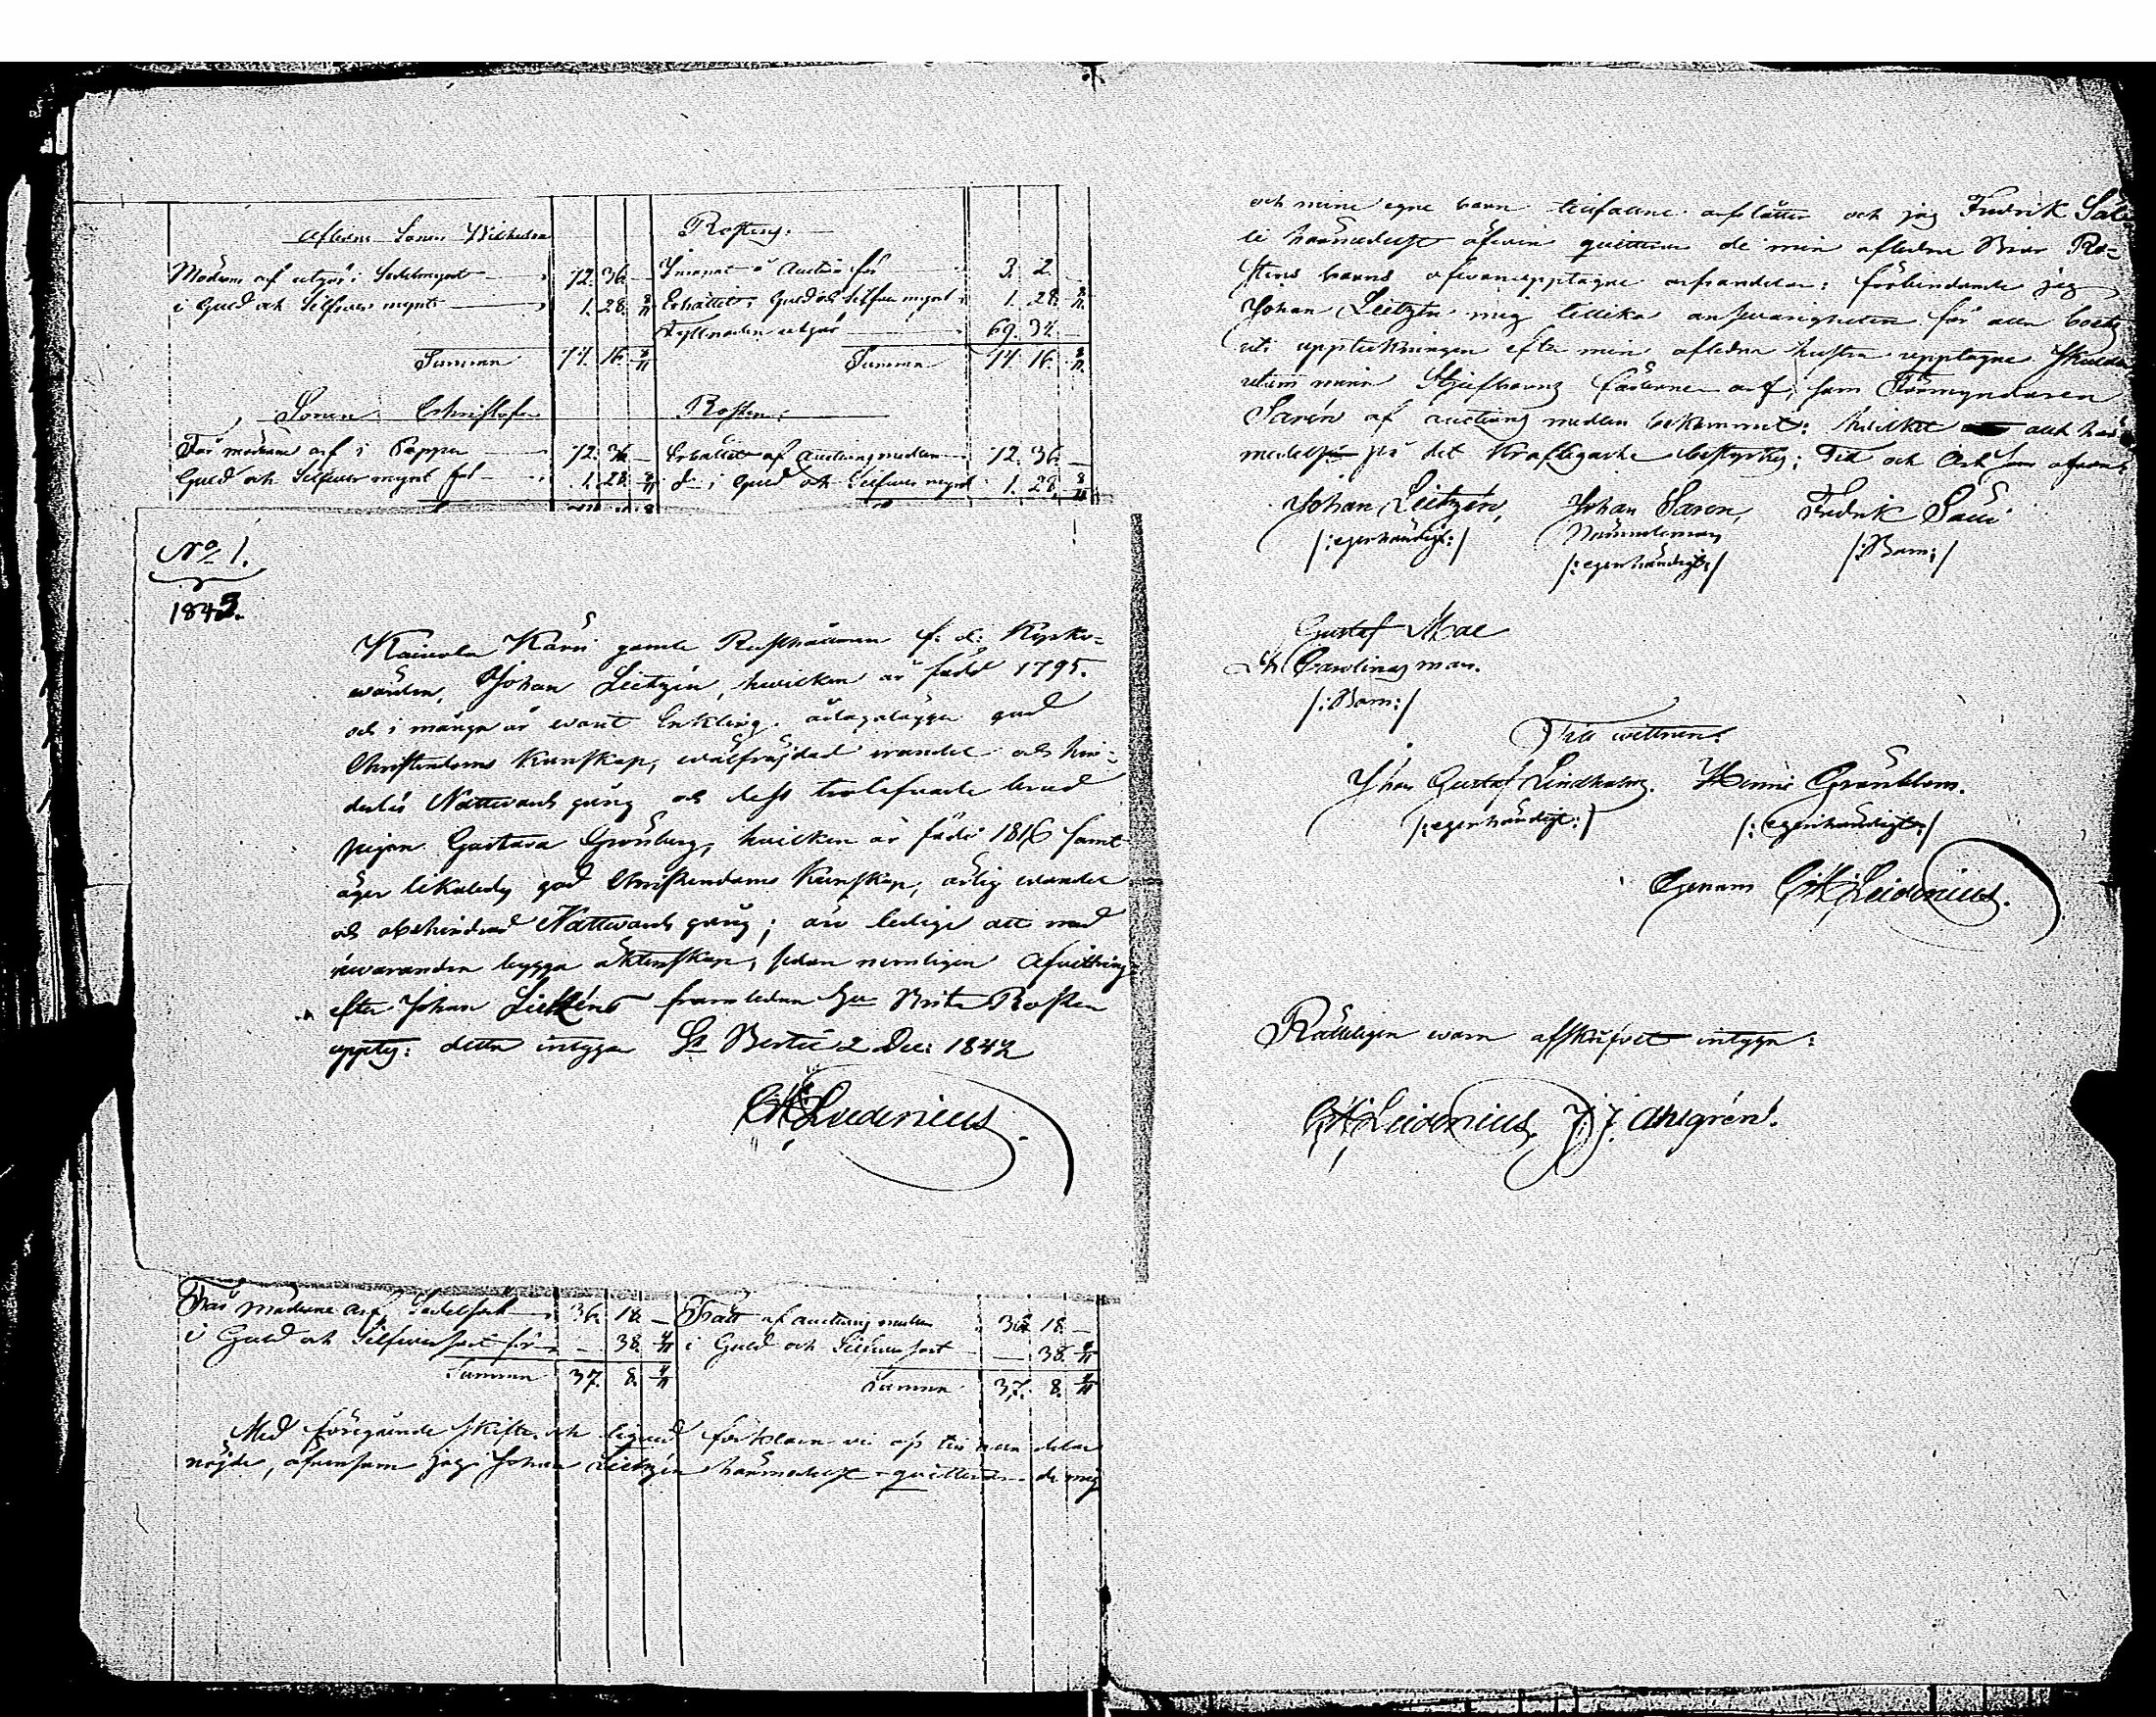 aflidne Sonen Wilhelm Rosten:
Mödern arf utgör i Sedelmynt 72. 36. — Inropat å Auction för 3. 2. —
i Guld och Silfwer mynt 1. 28. 8/11 Erhållit i Guld och Silfwer mynt 1. 28. 8/11
Fyllnaden utgör 69. 34. —
Summa 74. 16. 8/11 Summa 74. 16. 8/11
Sonen Christofer Rosten:
Får möderne arf i Papper 72. 36. — Erhållit af Auctions medlen 72. 36. —
Guld och Silfwer mynt 1. 28. 8/11 d:o i Guld och Silfwer mynt 1. 28. 8/11
No 1.
1843.
Kaivola Käni gamle Rusthållaren f. d. Kyrko-
wärden, Johan Lietzén, hvilken är född 1795.
och i många år warit Enkling. ådagalägger god
Christendoms Kunskap, wälfrejdad wandel och hin-
derlös Nattwards gång och dess trolofwade brud
pigan Gustava Grönberg, hvilken är född 1816 samt
äger likaledes god Christendoms Kunskap, ärlig wandel
och obehindrad Nattwards gång; äro ledige att med
hwarandra bygga äktenskap, sedan nemligen Afwittring
efter Johan Lietzéns framledna Hu Brita Rosten
uppty: detta intygar St Bertils 2 Dec: 1842
C H Leidenius
Får möderne arf i Sedel sort 36. 18. — Fått af auctions medlen 36. 18. —
i Guld och Silfwer sort för — 38. 4/11 i Guld och Silfwer sort — 38. 4/11
Summa 37. 8. 4/11 Summa 37. 8. 4/11
Med föregående skifte och liquid förklara vi oss till alla delar
nöjde, äfwensom jag Johan Lietzén härmedelst quitterar de mig
och mine egne barn tillfallne arfslotter och jag Fredrik Sal-
li härmedelst äfwen quitterar de min aflidne Bror Ro-
stens barns ofwanupptagne arfsandelar: förbindande jag
Johan Lietzén mig tillika answarigheten för alla boets
uti uppteckningen efter min aflidna hustru upptagne skulder
utom mina Styfbarns fäderne arf, som Förmyndaren
Sarén af auctions medlen bekommit: hvilket allt här-
medelst på det Kraftigaste bestyrkes; Tid och Ort som ofwan
Johan Lietzén, Johan Saren, Fredrik Salli
/: egenhändigt :/ Nämndeman /: Bom :/
/: egenhändigt :/
Gustaf Mae
Carolinas man.
/: Bom :/
Till wittnen:
Johan Gustaf Lindholm. Henric Grönblom.
/: egenhändigt :/ /: egenhändigt :/
Genom C H Leidenius.
Rätteligen wara afskrifvet intyga:
C H Leidenius. J. J. Ahlgrén.